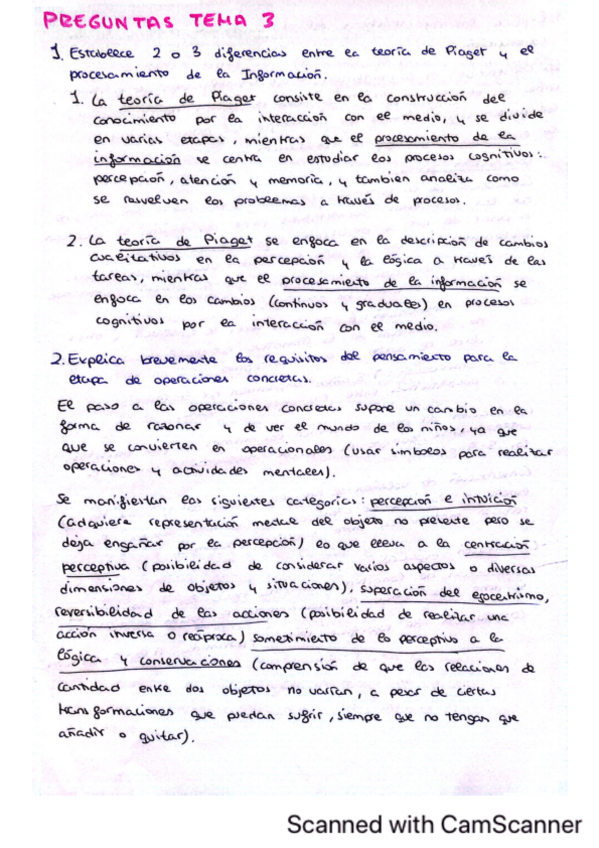 PREGUNTAS TEMA 3
1. Establece 2 o 3 diferencias entre la teoría de Piaget y el
procesamiento de la Información.
1. La teoría de Piaget consiste en la construcción del
conocimiento por la interacción con el medio, y se divide
en varias etapas, mientras que el procesamiento de la
información se centra en estudiar los procesos cognitivos:
percepción, atención y memoria, y tambien analiza como
se resuelven los problemas a través de procesos.
2. La teoría de Piaget se enfoca en la descripción de cambios
cualitativos en la percepción y la lógica a través de las
tareas, mientras que el procesamiento de la información se
enfoca en los cambios (continuos y graduales) en procesos
cognitivos por la interacción con el medio.
2. Explica brevemente los requisitos del pensamiento para la
etapa de operaciones concretas.
El paso a las operaciones concretas supone un cambio en la
forma de razonar y de ver el mundo de los niños, ya que
que se convierten en operacionales (usar simbolos para realizar
operaciones y actividades mentales).
Se manifiestan las siguientes categorias: percepción e intuición
(adquiere representación mental del objeto no presente pero se
deja engañar por la percepción) lo que lleva a la centración
perceptiva (posibilidad de considerar varios aspectos o diversas
dimensiones de objetos y situaciones), superación del egocentrismo,
reversibilidad de las acciones (posibilidad de realizar una
acción inversa o recíproca) sometimiento de lo perceptivo a la
lógica y conservaciones (comprensión de que las relaciones de
cantidad entre dos objetos no varían, a pesar de ciertas
transformaciones que puedan sufrir, siempre que no tengan que
añadir o quitar).
Scanned with CamScanner